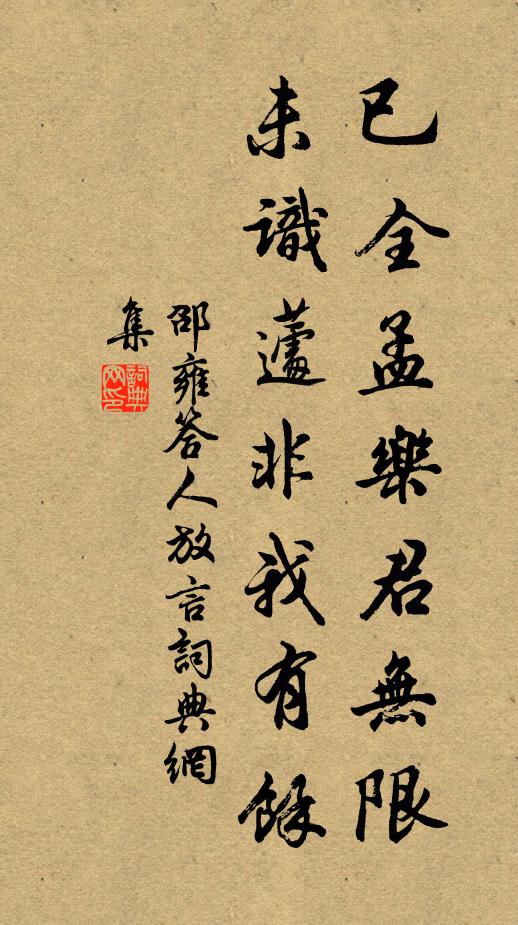 已全孟樂君無限
未識蘧非我有餘
邵雍答人放言詞典網
集
詞典網印